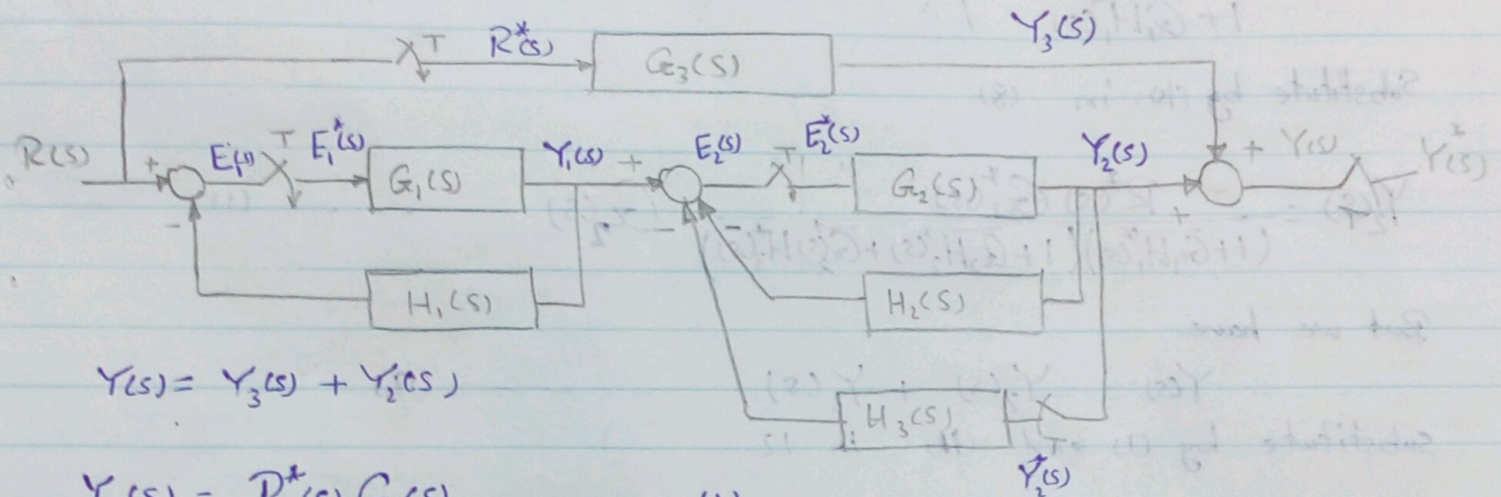 Y₃(s)
T R*(s) G₃(s)
R(s) + E₁(s) T E₁*(s) G₁(s) Y₁(s) + E₂(s) T E₂*(s) G₂(s) Y₂(s) + Y(s) Y*(s)
- - - + T
H₁(s) H₂(s)
Y(s) = Y₃(s) + Y₂(s)
H₃(s)
Y₂*(s)